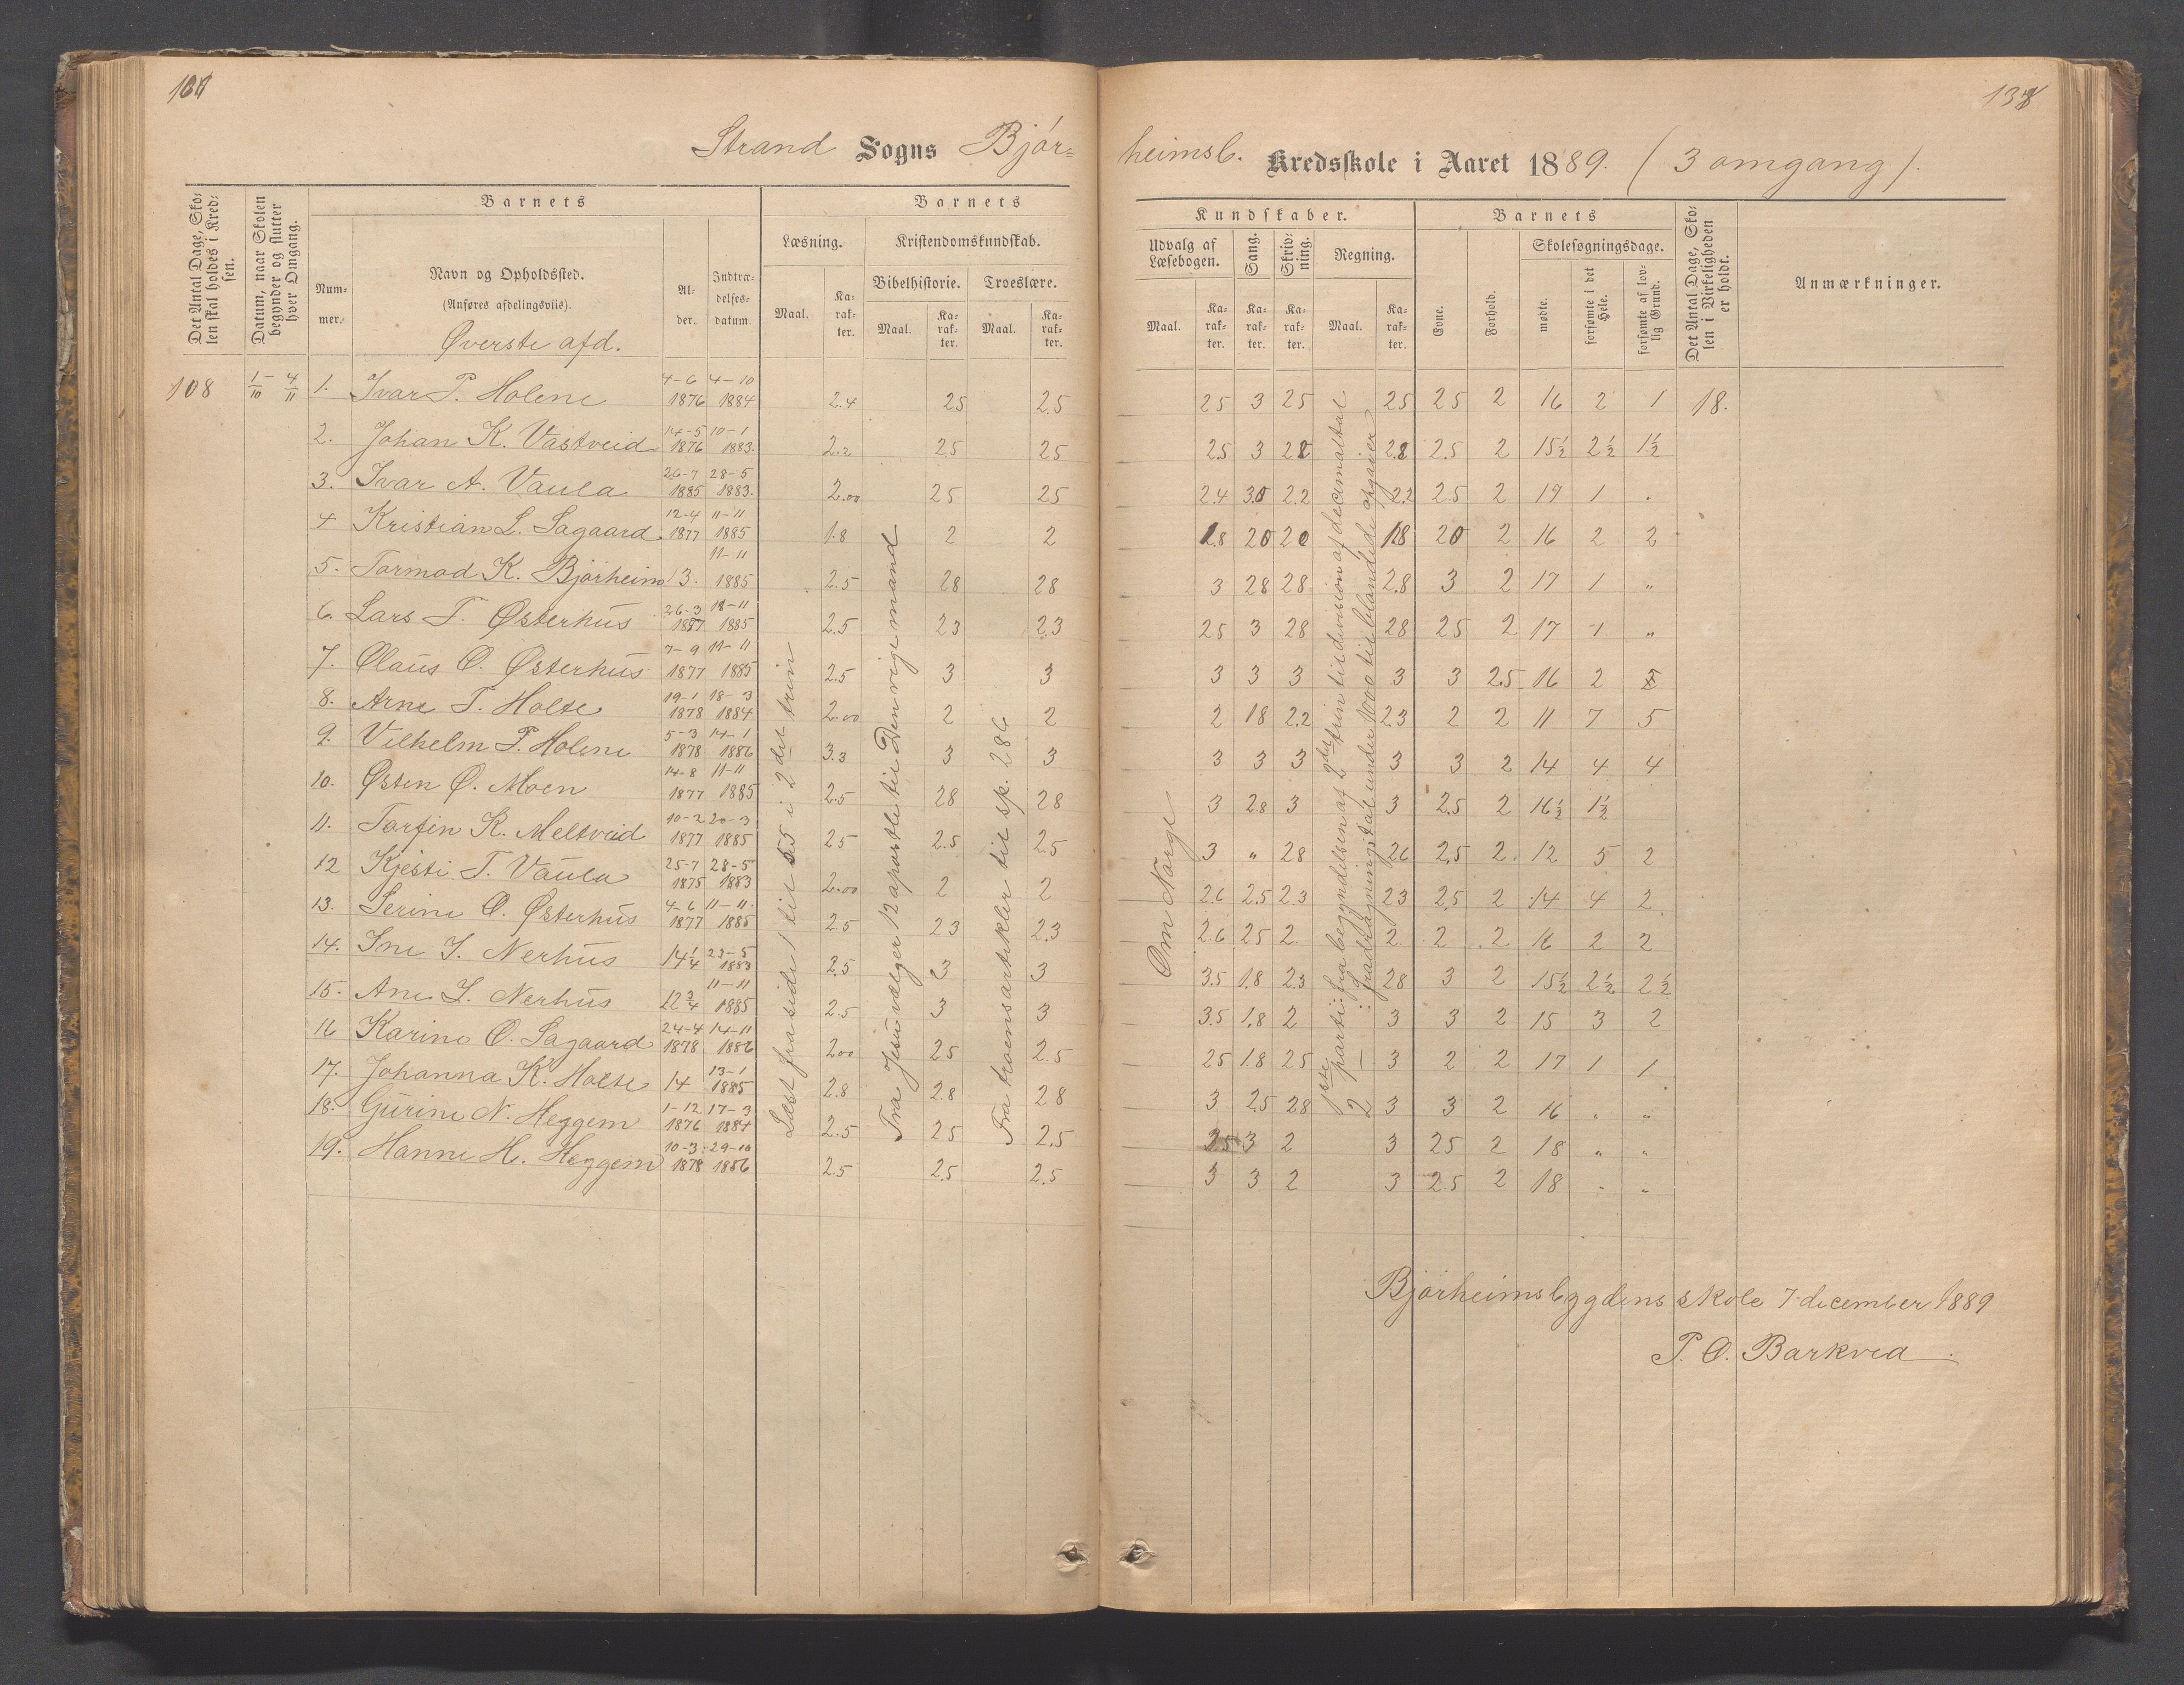 Strand Sogns Bjór=
heimsb. Kredsskole i Aaret 1889. (3 omgang).
Det Antal Dage, Sko-
len skal holdes i Kred-
sen.
Datum, naar Skolen
begynder og slutter
hver Omgang.
Barnets
Num-
mer.
Navn og Opholdssted.
(Anføres afdelingsviis).
Øverste afd.
Al-
der.
Indtræ-
delses-
datum.
Barnets
Læsning.
Maal.
Ka-
rak-
ter.
Kristendomskundskab.
Bibelhistorie.
Maal.
Ka-
rak-
ter.
Troeslære.
Maal.
Ka-
rak-
ter.
Kundskaber.
Udvalg af
Læsebogen.
Maal.
Ka-
rak-
ter.
Sang.
Ka-
rak-
ter.
Skriv-
ning.
Ka-
rak-
ter.
Regning.
Maal.
Ka-
rak-
ter.
Barnets
Evne.
Forhold.
Skolesøgningsdage.
mødte.
forsømte i det
Hele.
forsømte af lov-
lig Grund.
Det Antal Dage, Sko-
len i Virkeligheden
er holdt.
Anmærkninger.
108 1/10 - 4/11 1. Ivar P. Holene 4-6 1876 4-10 1884 2.4 25 2.5 25 3 25 25 25 2 16 2 1 18.
2. Johan K. Vastveid 14-5 1876 10-1 1883. 2.2 25 25 2.5 3 28 2.8 2.5 2 15½ 2½ 1½
3. Ivar A. Vaula 26-7 1885 28-5 1883. 2.00 25 25 2.4 30 2.2 2.2 2.5 2 19 1 .
4 Kristian L. Sagaard 12-4 1877 11-11 1885 1.8 2 2 1.8 20 20 1.8 20 2 16 2 2
5. Tormod K. Bjørheim 13. 11-11 1885 2.5 28 28 3 28 28 2.8 3 2 17 1 "
6. Lars T. Østerhus 26-3 1877 18-11 1885 2.5 23 2.3 25 3 28 28 25 2 17 1 "
7. Olaus O. Østerhus 7-9 1877 11-11 1885 2.5 3 3 3 3 3 3 3 2.5 16 2
8. Arne T. Holte 19-1 1878 18-3 1884 2.00 2 2 2 18 2.2 23 2 2 11 7 5
9. Vilhelm P. Holene 5-3 1878 14-1 1886 3.3 3 3 3 3 3 3 3 2 14 4 4
10. Østen Ø. Moen 14-8 1877 11-11 1885 2.5 28 28 3 2.8 3 3 2.5 2 16½ 1½
11. Torfin K. Meltveid 10-2 1877 20-3 1885 25 2.5 2.5 3 " 28 26 2.5 2. 12 5 2
12 Kjesti T. Vaula 25-7 1875 28-5 1883 2.00 2 2 2.6 2.5 2.3 23 2.5 2 14 4 2
13. Serine O. Østerhus 4-6 1877 11-11. 1885 2.5 23 2.3 2.6 25 2. 2 2 2 16 2 2
14. Ine I. Nerhus 14¼ 23-5 1883 2.5 3 3 3.5 1.8 2.3 28 3 2 15½ 2½ 2½
15. Ane L. Nerhus 12¾ 11-11 1885 2.5 3 3 3.5 1.8 2 3 3 2 15 3 2
16 Karine O. Sagaard 24-4 1878 14-11 1886 2.00 25 2.5 25 1.8 25 3 2 2 17 1 1
17. Johanna K. Holte 14 13-1 1885 2.8 2.8 28 3 2.5 28 3 3 2 16 " "
18. Gurine N. Heggem 1-12 1876 17-3 1884 2.5 25 2.5 25 3 2 3 25 2 18 " "
19. Hanne H. Heggem 10-3 1878 29-10 1886 2.5 2.5 2.5 3 3 2 3 2.5 2 18 " "
Læst fra side 1 til 55 i 2det trin
Fra Jesus vælger 12 apostle til Den rige mand
Fra troens artikler til sp. 286
Om Norge
1ste parti: fra begyndelsen af 2det trin til division af decimaltal
2 — : fradragningstal under 1000 til blandede opgaver
Bjørheimsbygdens skole 7 december 1889
P. O. Barkved.